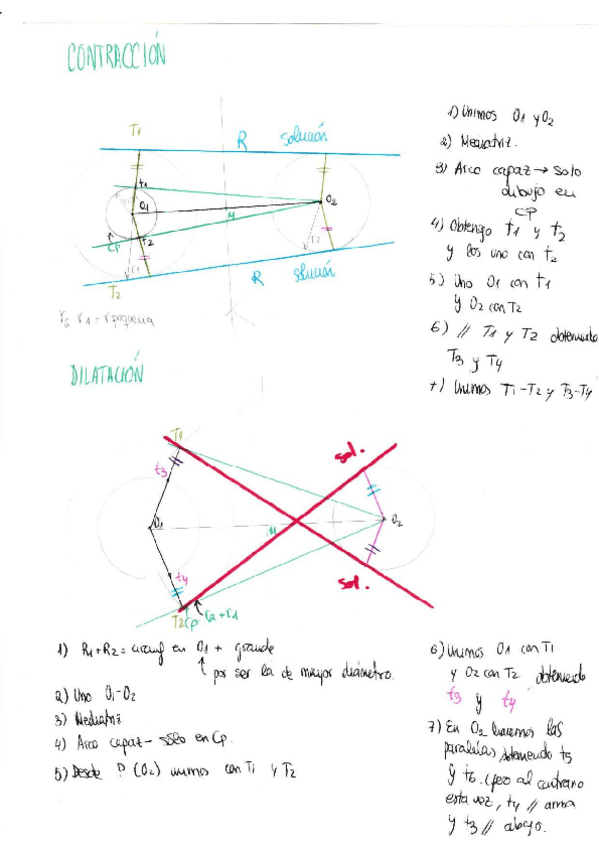 CONTRACCIÓN
T1
R solución
t1
O1
O2
M
t2
CP
r1
r2
T2
R solución
1) Unimos O1 y O2
2) Mediatriz.
3) Arco capaz → Solo
dibujo en
CP
4) Obtengo t1 y t2
y los uno con t2
5) Uno O1 con t1
y O2 con T2
6) // T1 y T2 obteniendo
T3 y T4
7) Unimos T1-T2 y T3-T4
r1 - r pequeña
DILATACIÓN
T1
sol.
t3
O1
M
O2
t4
sol.
T2
Cp
r2+r1
1) R1+R2 = circunf en O1 + grande
por ser la de mayor diámetro.
2) Uno O1-O2
3) Mediatriz
4) Arco capaz - sólo en Cp.
5) Desde P (O2) unimos con T1 y T2
6) Unimos O1 con T1
y O2 con T2 obteniendo
t3 y t4
7) En O2 hacemos las
paralelas, obteniendo t5
y t6. (pero al contrario
esta vez, t4 // arriba
y t3 // abajo.